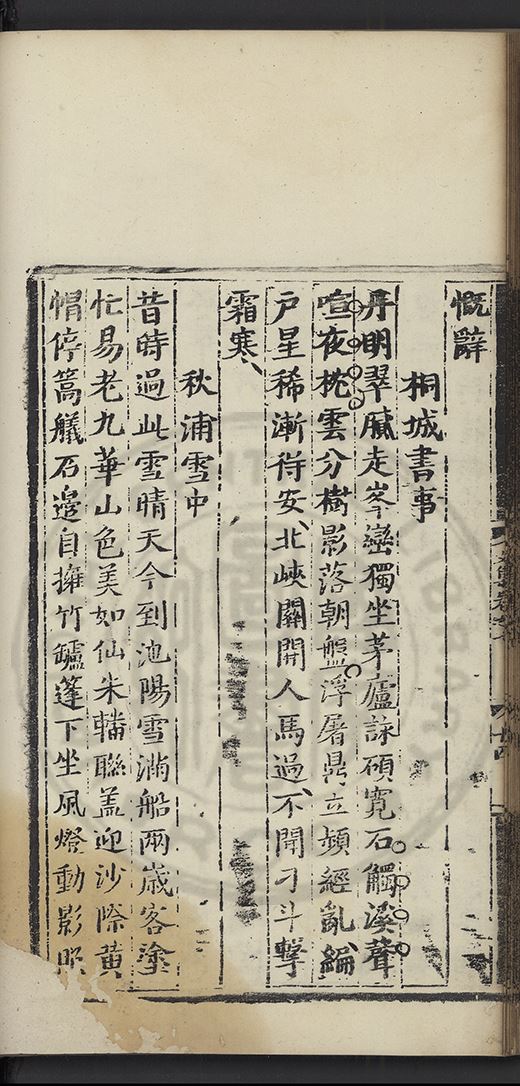 慨辭
桐城書事
丹明翠膩走峯巒獨坐茅廬詠碩寬石觸溪聲
喧夜枕雲分樹影落朝盤浮屠鼎立頻經亂編
戶星稀漸得安北峽關開人馬過不聞刁斗擊
霜寒
秋浦雪中
昔時過此雪晴天今到池陽雪滿船兩歲客塗
忙易老九華山色美如仙朱轓聯蓋迎沙際黃
帽停篙艤石邉自擁竹鑪蓬下坐風燈動影照